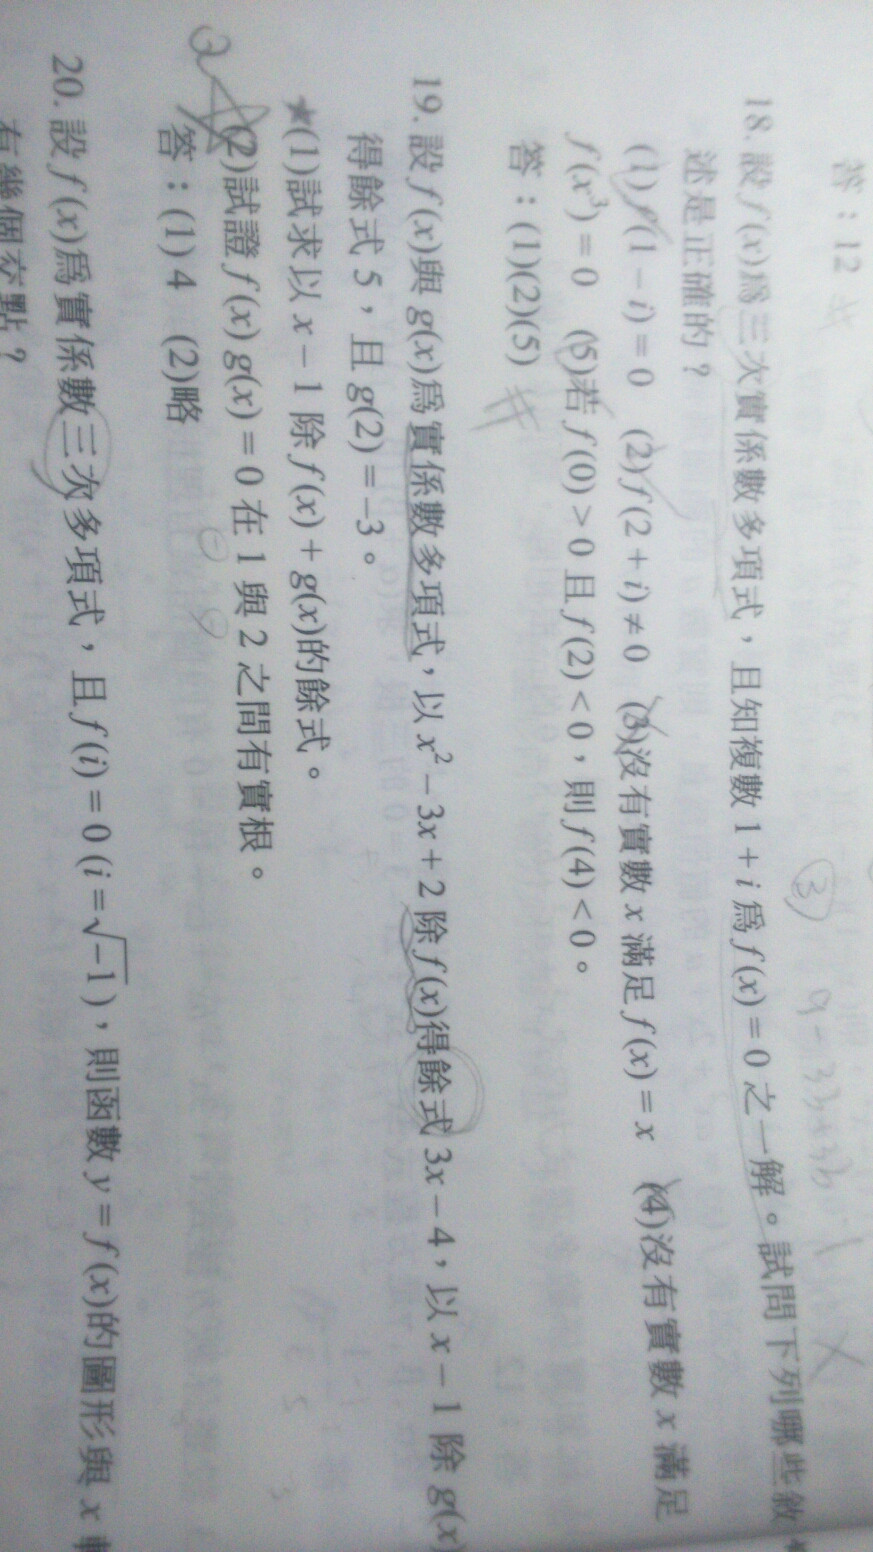 答：12
18. 設 f(x)為三次實係數多項式，且知複數 1 + i 為 f(x) = 0 之一解。試問下列哪些敘
述是正確的？
(1) f(1 − i) = 0 (2) f(2 + i) ≠ 0 (3)沒有實數 x 滿足 f(x) = x (4)沒有實數 x 滿足
f(x³) = 0 (5)若 f(0) > 0 且 f(2) < 0，則 f(4) < 0。
答：(1)(2)(5)
19. 設 f(x)與 g(x)為實係數多項式，以 x² − 3x + 2 除 f(x)得餘式 3x − 4，以 x − 1 除 g(x)
得餘式 5，且 g(2) = −3。
★(1)試求以 x − 1 除 f(x) + g(x)的餘式。
(2)試證 f(x) g(x) = 0 在 1 與 2 之間有實根。
答：(1) 4 (2)略
20. 設 f(x)為實係數三次多項式，且 f(i) = 0 (i = √−1)，則函數 y = f(x)的圖形與 x
有幾個交點？